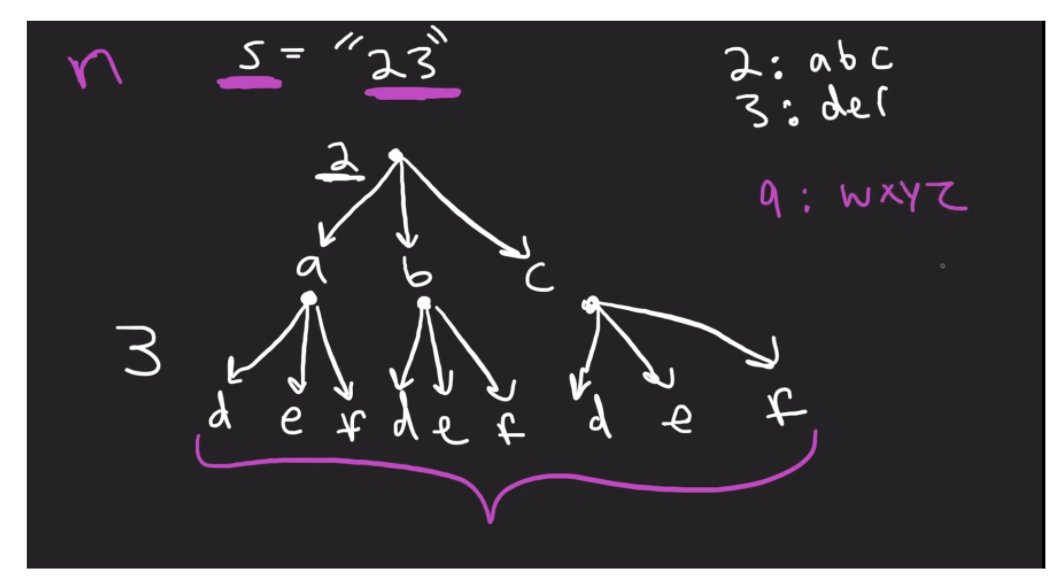 n
s = "23"
2: abc
3: def
9: wxyz
2
a b c
3
d e f d e f d e f